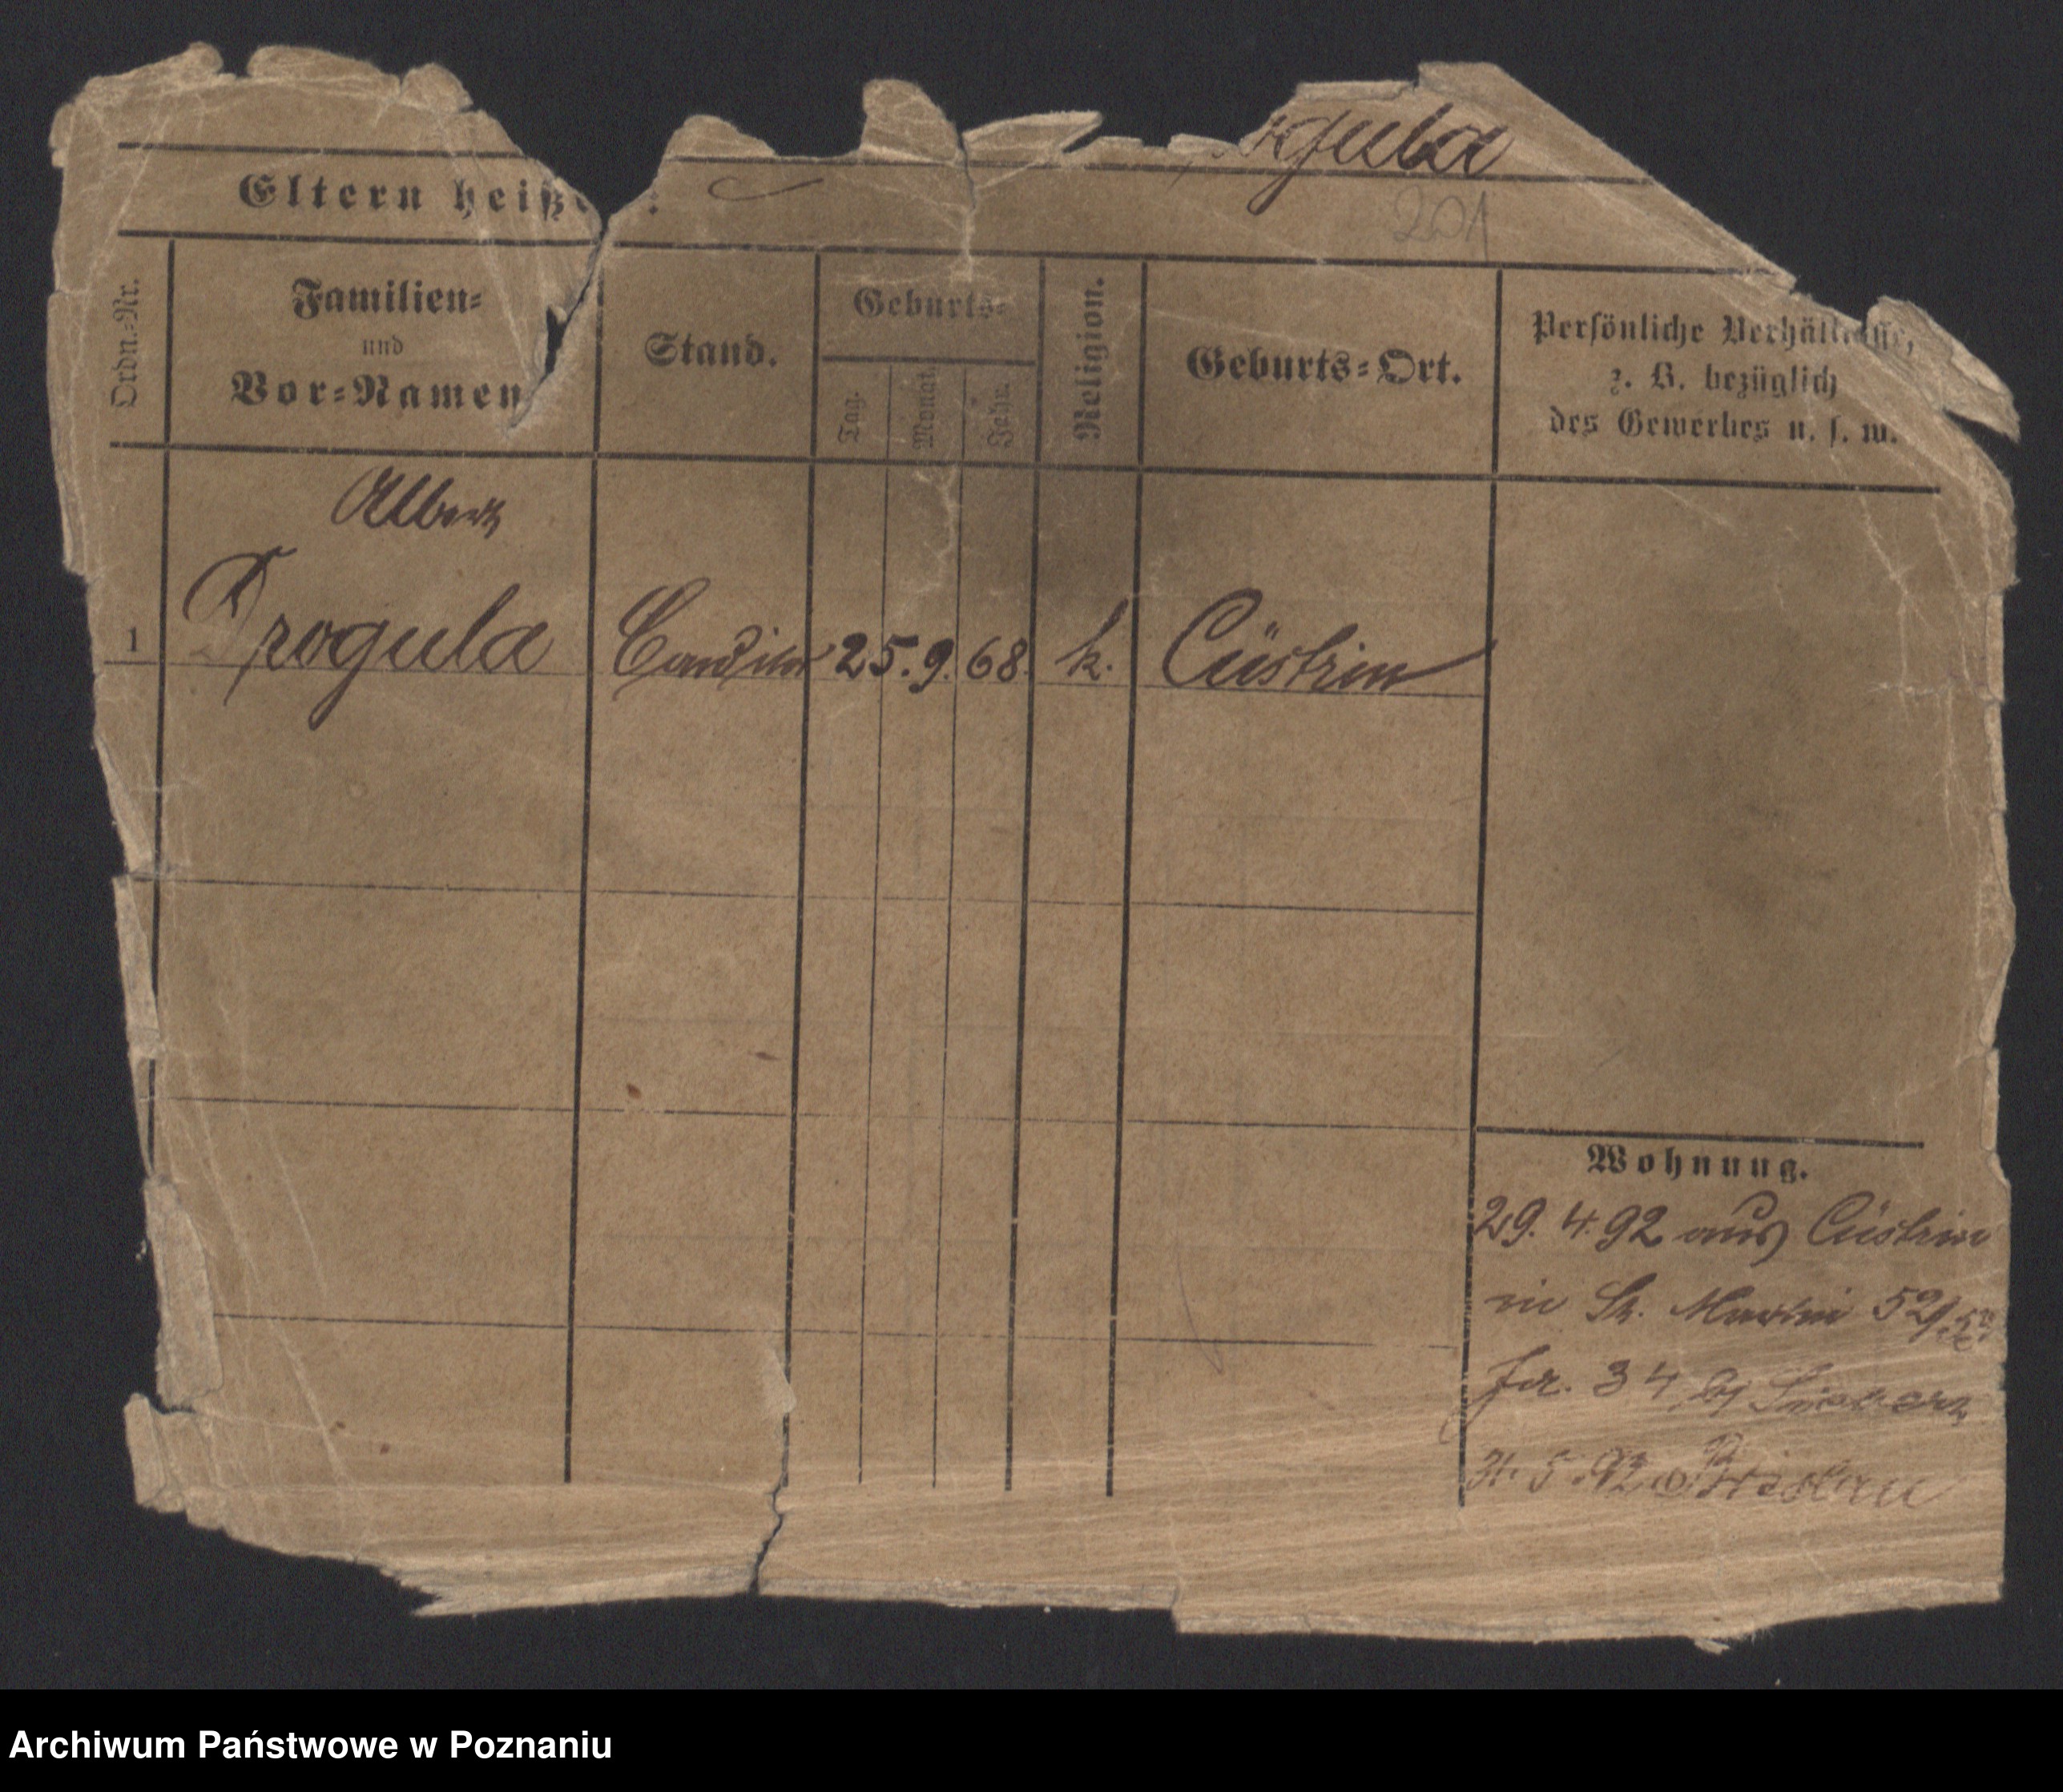 ogula
Eltern heiße :
201
Ordn.-Nr.
Familien-
und
Vor-Namen
Stand.
Geburts-
Tag.
Monat.
Jahr.
Religion.
Geburts-Ort.
Persönliche Verhältnisse,
z. B. bezüglich
des Gewerbes u. s. w.
Albert
1 Drogula Conditor 25. 9. 68. k. Cüstrin
Wohnung.
29. 4. 92 aus Cüstrin
in St. Martin 52/
34 bei
31. 5. 92
Archiwum Państwowe w Poznaniu